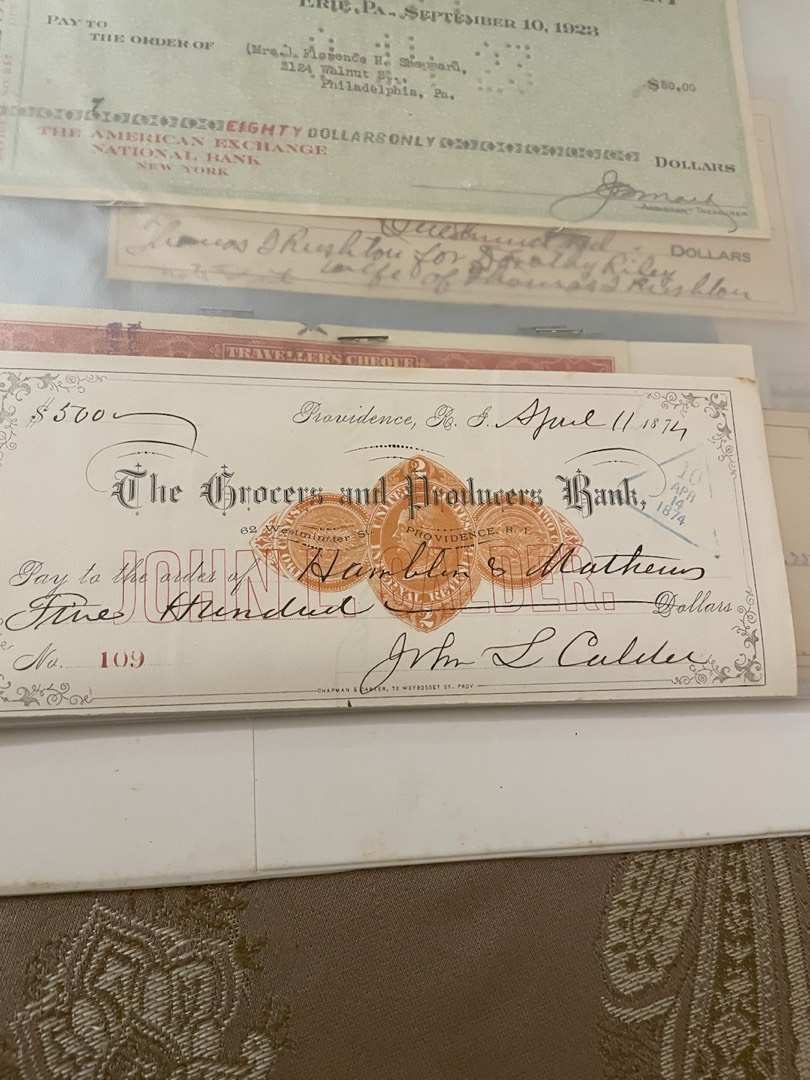 ERIE, PA., SEPTEMBER 10, 1923
PAY TO
THE ORDER OF
(Mrs.) Florence H. Sheppard,
2124 Walnut St.,
Philadelphia, Pa.
$80.00
EIGHTY DOLLARS ONLY
DOLLARS
THE AMERICAN EXCHANGE
NATIONAL BANK
NEW YORK
ASSISTANT TREASURER
DOLLARS
Thomas I Rushton for Dorothy Riley
wife of Thomas I Rushton
TRAVELLER'S CHEQUE
$500
Providence, R. I. April 11 1874
The Grocers and Producers Bank,
62 Westminster St. PROVIDENCE, R. I.
10
APR
14
1874
2
JOHN L. CALDER.
Pay to the order of Hamblin & Mathews
Five Hundred Dollars
2
No. 109
John L Calder
CHAPMAN & CARTER, 70 WEYBOSSET ST. PROV